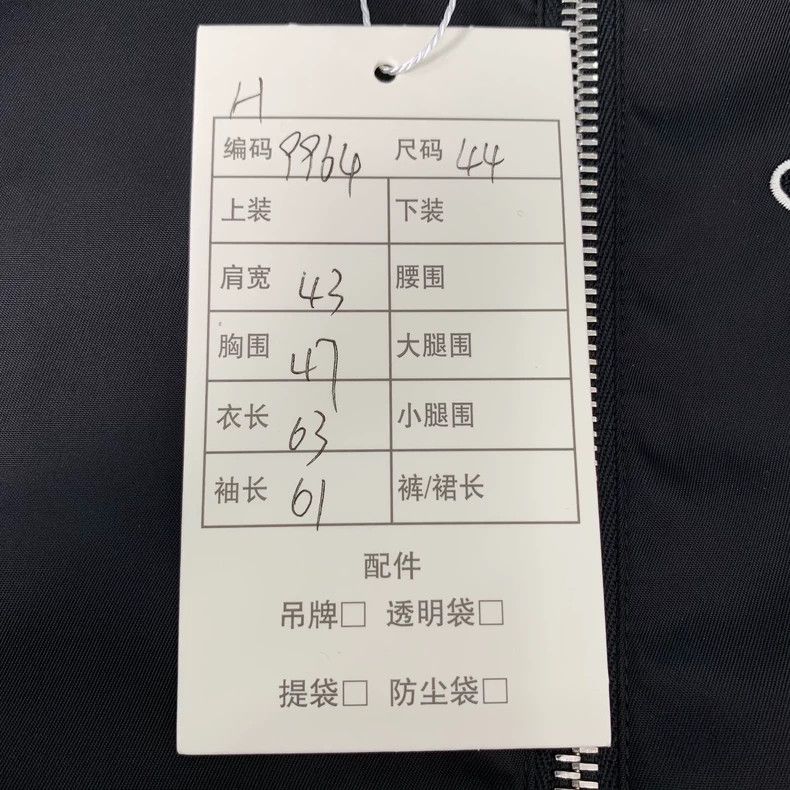 H
编码 9964 尺码 44
上装 下装
肩宽 43 腰围
胸围 47 大腿围
衣长 63 小腿围
袖长 61 裤/裙长
配件
吊牌□ 透明袋□
提袋□ 防尘袋□